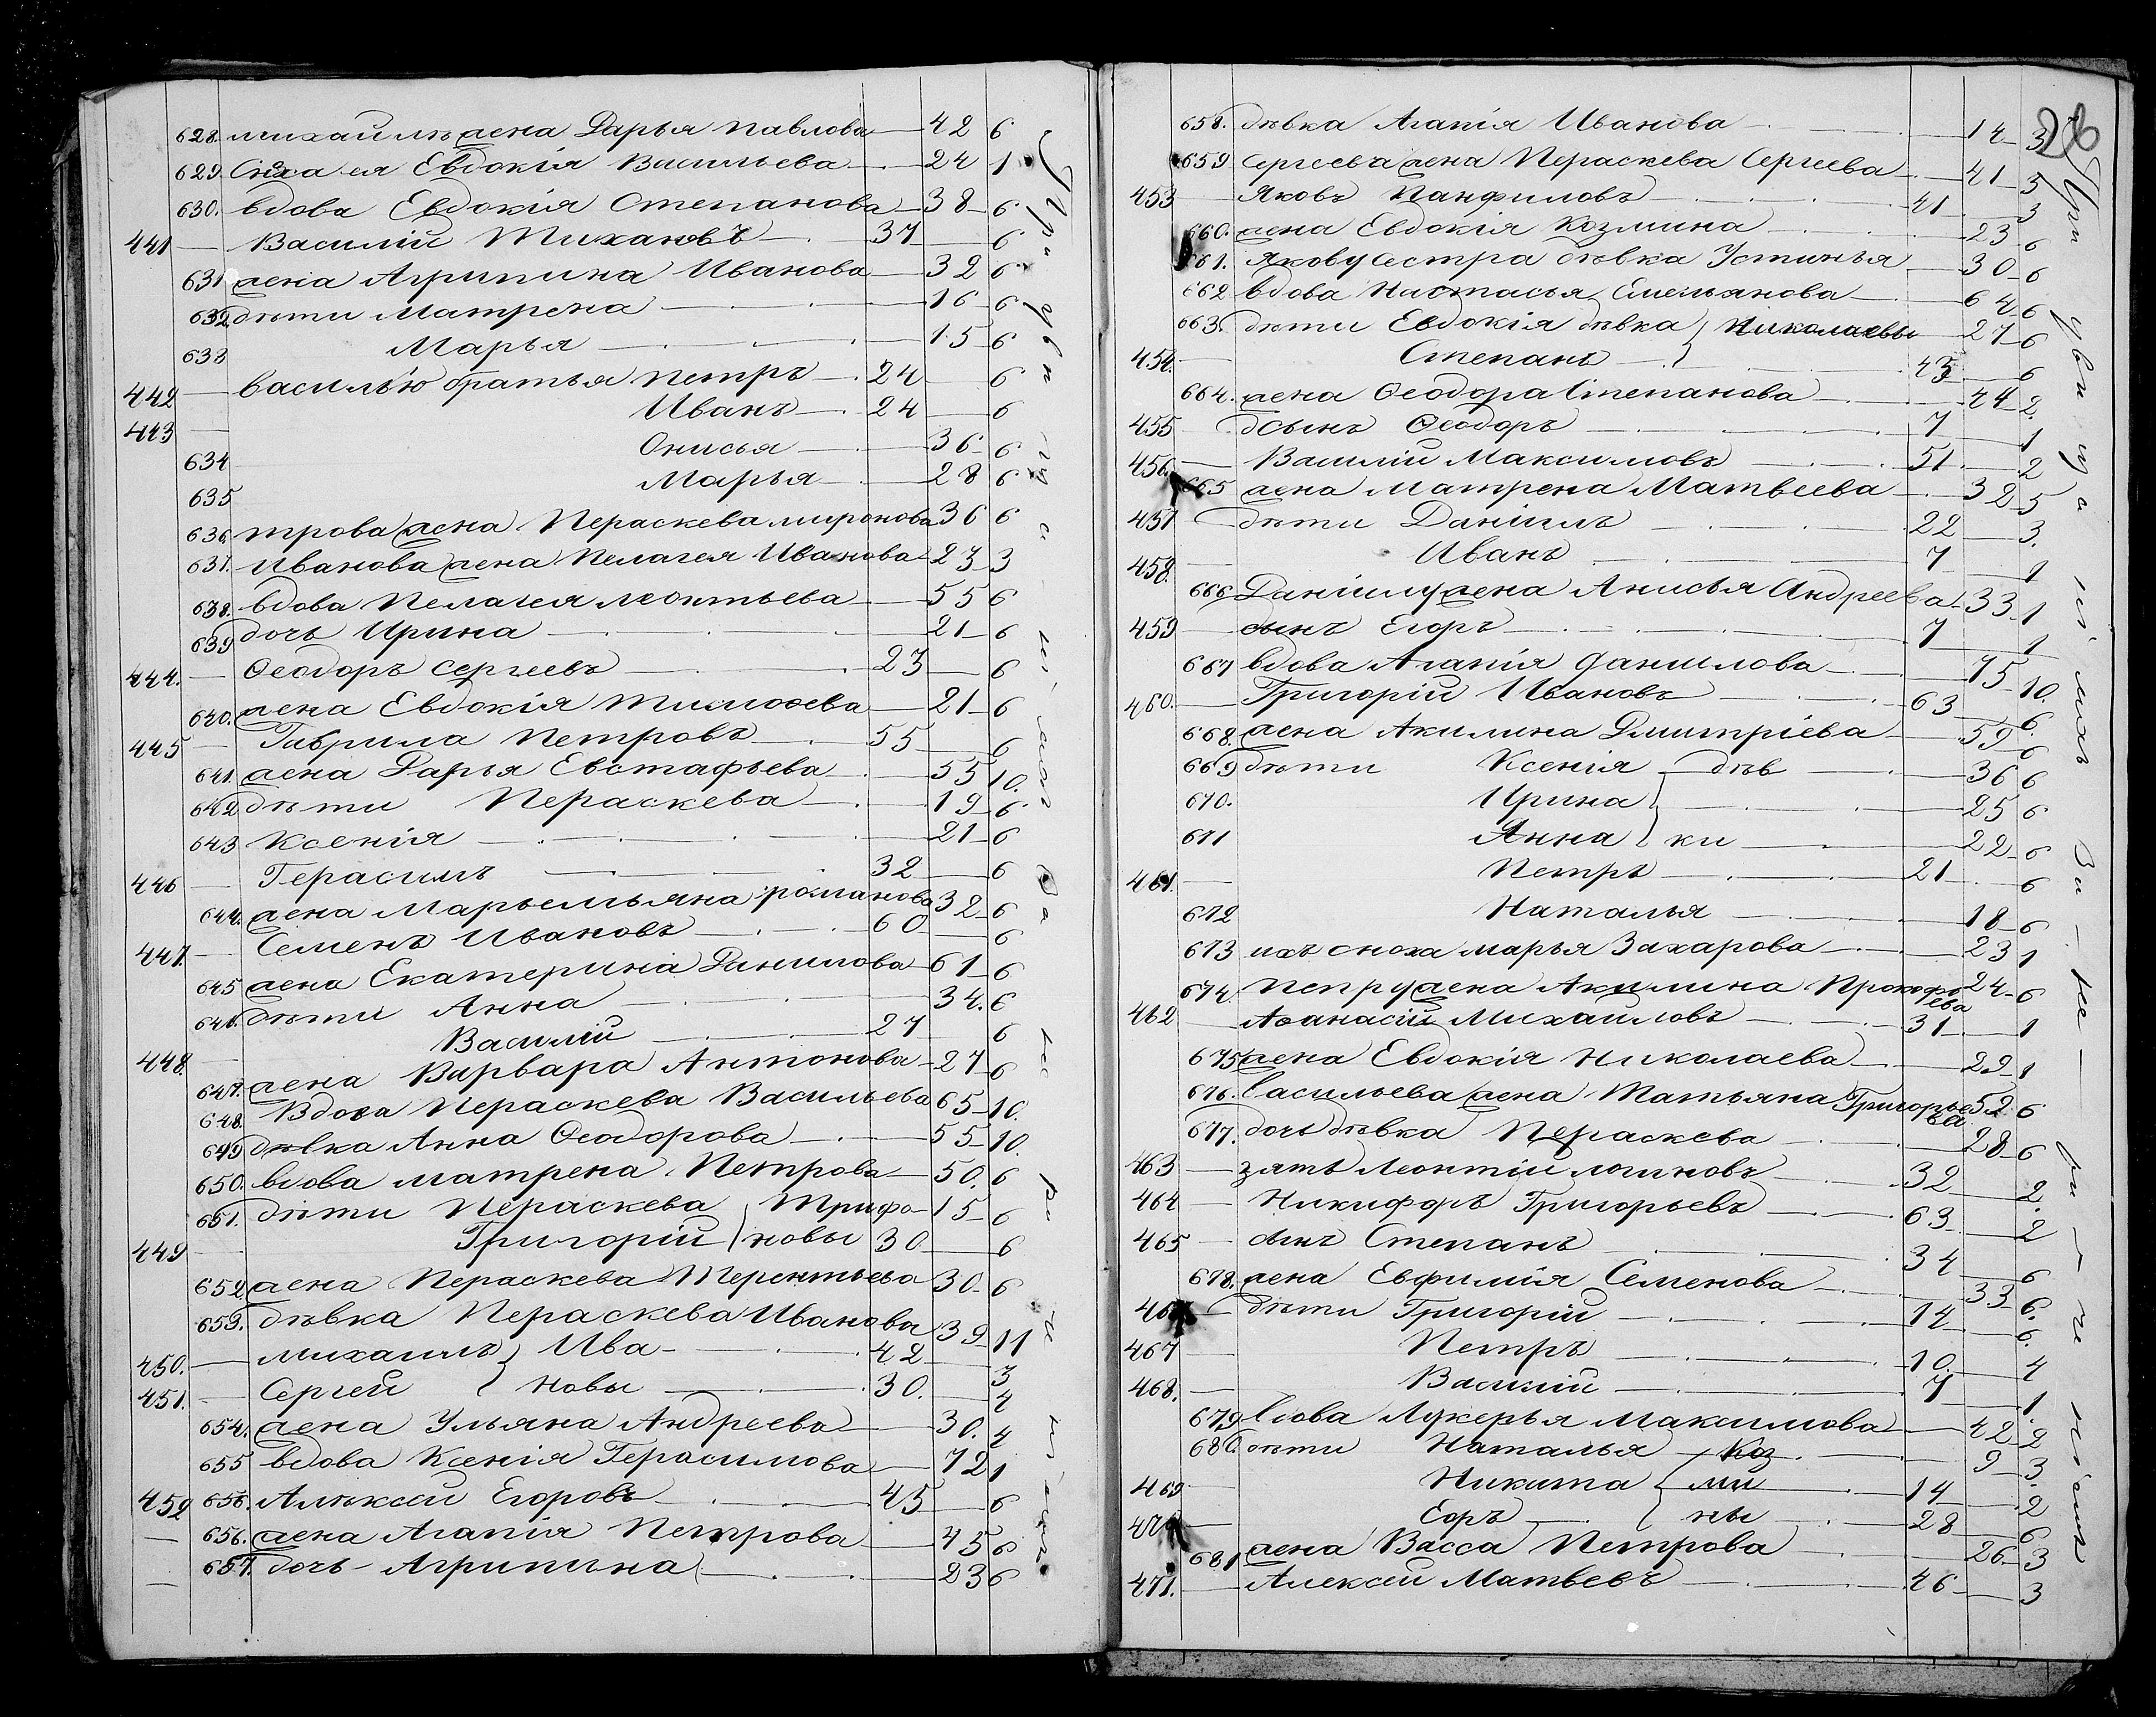 628. михаилъ жена Дарья павлова — 42 6
629. Евдокія Васильева — 24 1
630. вдова Евдокія Степанова — 38 — 6
441 — Василій Тихановъ — 37 — 6
631 жена Агрипина Иванова — 32 6
632 дѣти Матрена — 16 — 6
633 Марья — 15 — 6
442 — василью братья петръ — 24 — 6
443 — Иванъ — 24 — 6
634 Онисья — 36 — 6
635 Марья — 28 6
636. трова жена Пераскева миронова 36 6
637. Иванова жена Пелагея Иванова — 23 3
638. вдова Пелагея леонтьева — 55 6
639 дочь Ирина — 21 — 6
444. — Ѳеодоръ Сергеевъ — 23 — 6
640. жена Евдокія тимоѳева — 21 — 6
445 — Гаврила Петровъ — 55 — 6
641. жена Дарья Евстафьева — 55 10.
642 дѣти Пераскева — 19 — 6
643 Ксенія — 21 — 6
446 — Герасимъ — 32 — 6
644. жена романова 32 — 6
447. — Семенъ Ивановъ — 60 — 6
645 жена Екатерина Данилова — 61 — 6
646. дѣти Анна — 34. 6
448. — Василій — 27 — 6
647. жена Варвара Антонова — 27 — 6
648. Вдова Пераскева Васильева 65 — 10.
649 дѣвка Анна Ѳеодорова — 55 — 10.
650. вдова матрена Петрова — 50. 6
651. дѣти Пераскева Трифо- 15 — 6
449 — Григорій новы 30 — 6
652. жена Пераскева Терентьева 30 — 6
653. дѣвка Пераскева Иванова 39 — 11
450. — михаилъ Ива- 42 — 3
451. — Сергей новы — 30. — 4
654. жена Ульяна Андреева — 30. 4
655 вдова Ксенія Герасимова — 72 1
452 656. Алѣксей Егоровъ — 45 — 6
— 656. жена Агапія Петрова — 45 6
— 657. дочь — Агрипина — 23 6
658. дѣвка Агапія Иванова — 14 — 3
26
659 сергеева жена Пераскева Сергеева — 41 — 3
453 — Яковъ Панфиловъ — 41 — 3
660. жена Евдокія Козмина — 23 — 6
661. Якову сестра дѣвка Устинья — 30 — 6
662 вдова Настасья Емельянова — 64 6
663. дѣти Евдокія дѣвка Николаевы 27 — 6
454. — Степанъ — 43 — 6
664. жена Ѳеодора Степанова — 44 — 2.
455 сынъ Ѳеодоръ — 7 — 1
456. — Василій Максимовъ — 51 — 2
665 жена Матрена Матвеева — 32 — 5
457 — дѣти Даніилъ — 22 — 3.
458. — Иванъ — 7 — 1
666 Даніилу жена Анисья Андреева — 33 — 1
459 — сынъ Егоръ — 7 — 1
667 вдова Агапія данилова — 75 — 10.
460. — Григорій Ивановъ — 63 — 6.
668. жена Акилина Дмитріева — 59 — 6
669 дѣти Ксенія — дѣв — 36 6
670. Ирина — 25 6
671 Анна ки — 22 — 6
461. — Петръ — 21 — 6
672 Наталья — 18 — 6
673 ихъ сноха марья Захарова — 23 1
674. Петру жена Акилина Прокофьева 24 — 6
462 — Аѳанасій Михаиловъ — 31 — 1
675 жена Евдокія Николаева — 29 — 1
676. васильева жена Татьяна Григорьева 52 6
677. дочь дѣвка Пераскева — 28 — 6
463 — зять леонтій логиновъ — 32 — 2.
464 — Никифоръ Григорьевъ — 63 — 2
465 — сынъ Степанъ — 34 — 6
678. жена Евфимія Семенова — 33 — 6.
466 — дѣти Григорій — 14 — 6.
467 — Петръ — 10. — 4
468. — Василій — 7 — 1
679. вдова Лукерья Максимова — 42 — 2
680. дѣти Наталья — Коз — 9 — 3
469 — Никита — ми — 14 — 2
470 — Егоръ — ны — 28 — 6
681 жена Васса Петрова — 26 — 3
471. — Алексей Матвеевъ — 46 — 3